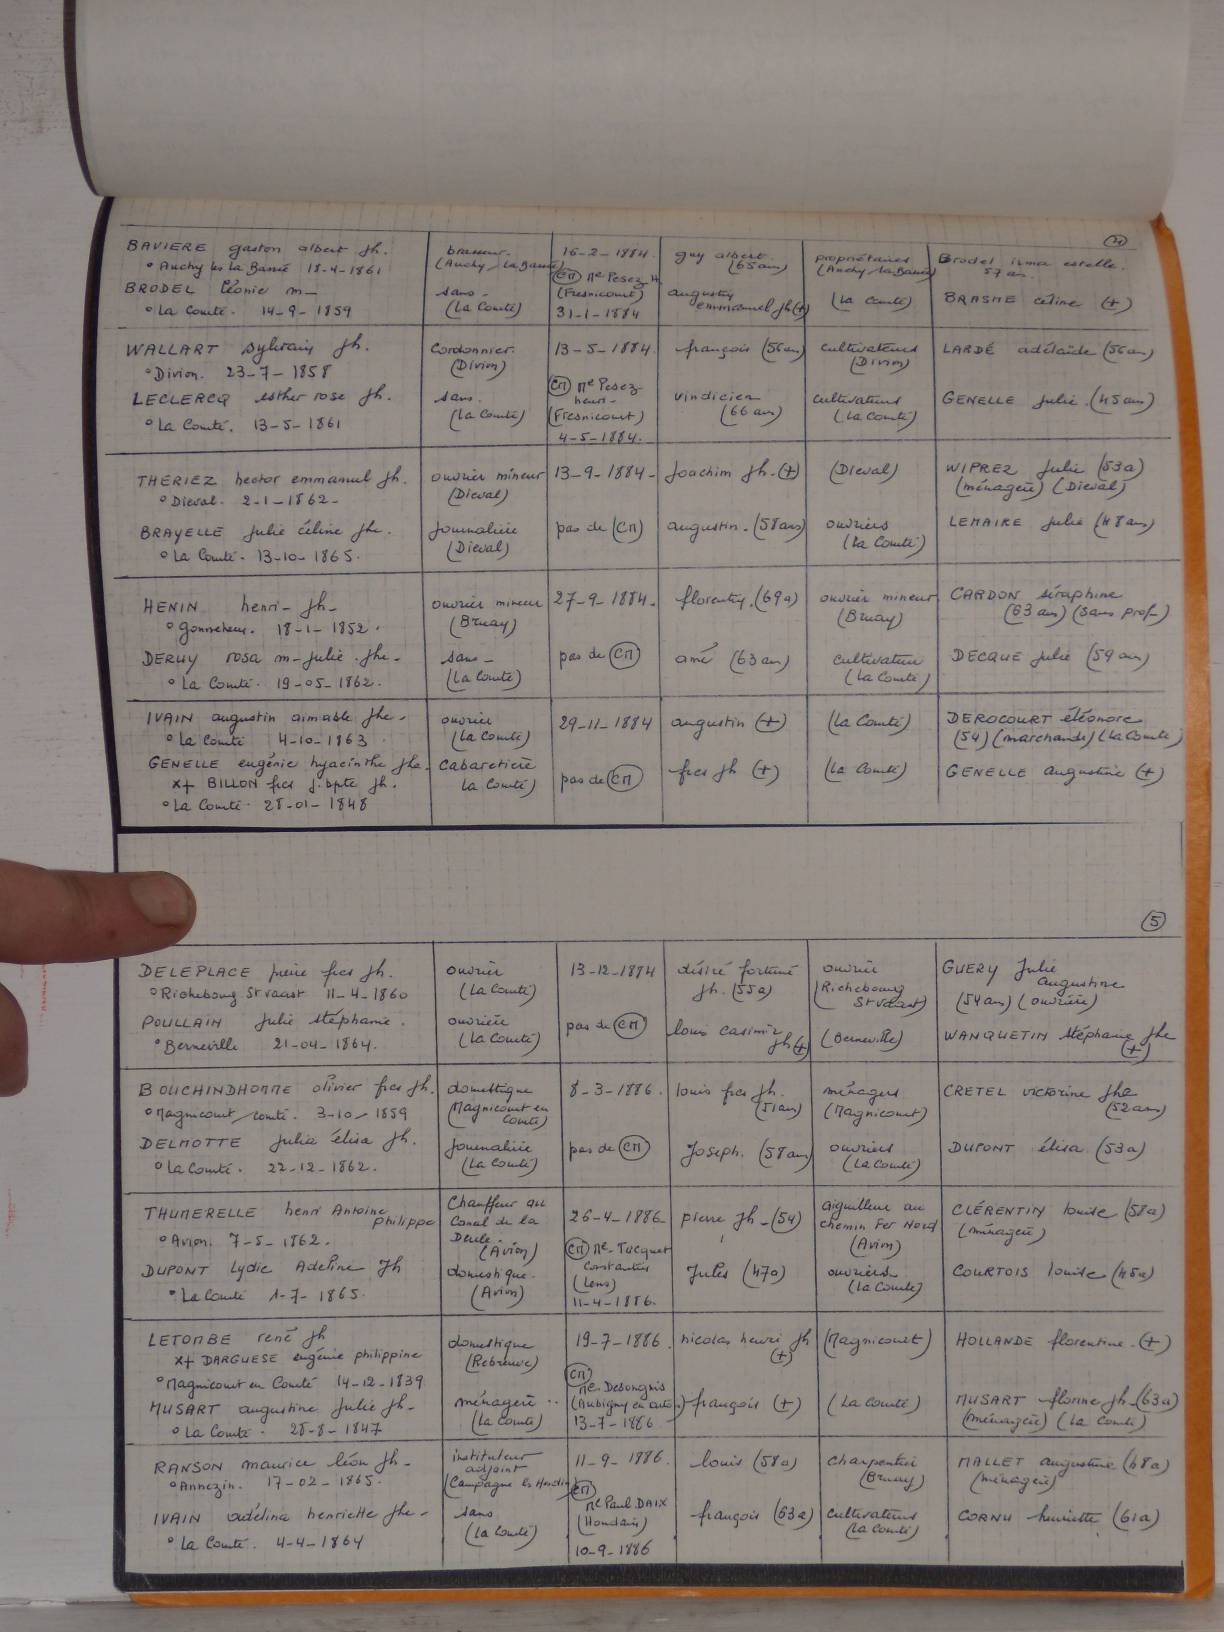 4
BAVIERE gaston albert jh. brasseur. 16-2-1884. guy albert. propriétaires Brodel irma estelle.
° Auchy les La Bassée 18-4-1861 (Auchy La Bassée) (65 ans) (Auchy La Bassée) 57 ans.
CM Me Pesez H.
BRODEL léonie m- sans- (Fresnicourt) (La Comté) BRASME céline (+)
° La Comté. 14-9-1859 (La Comté) 31-1-1884 emmanuel jh (+)
WALLART sylvain jh. Cordonnier. 13-5-1884. françois (56 ans) cultivateurs LARDÉ adélaïde (56 ans)
° Divion. 23-7-1858 (Divion) (Divion)
CM Me Pesez
LECLERCQ esther rose jh. sans. henri- vindicien cultivateurs GENELLE Julie. (45 ans)
° La Comté. 13-5-1861 (La Comté) (Fresnicourt) (66 ans) (La Comté)
4-5-1884.
THERIEZ hector emmanuel jh. ouvrier mineur 13-9-1884- Joachim jh-(+) (Dieval) WIPREZ Julie (53a)
° Dieval. 2-1-1862- (Dieval) (ménagère) (Dieval)
BRAYELLE Julie céline jhe. journalière pas de CM augustin-(58ans) ouvriers LEMAIRE Julie (48 ans)
° La Comté. 13-10-1865. (Dieval) (La Comté)
HENIN henri-jh- ouvrier mineur 27-9-1884- (69a) ouvrier mineur CARDON séraphine
° Gonnehem. 18-1-1852. (Bruay) (Bruay) (63 ans) (sans prof-)
DERUY rosa m-julie-jhe- sans- pas de CM amé (63 ans) cultivateur DECQUE Julie (59 ans)
° La Comté. 19-05-1862. (La Comté) (La Comté)
IVAIN augustin aimable jhe- ouvrier 29-11-1884 augustin (+) (La Comté) DEROCOURT éléonore
° La Comté 4-10-1863 (La Comté) (54) (marchande) (La Comté)
GENELLE eugénie hyacinthe jhe. Cabaretière pas de CM fcs jh (+) (La Comté) GENELLE augustine (+)
x+ BILLON fcs j.bpte jh. La Comté)
° La Comté. 28-01-1848
5
DELEPLACE pierre fcs jh. ouvrier 13-12-1884 désiré fortuné ouvrier GUERY Julie
° Richebourg St vaast 11-4-1860 (La Comté) jh. (55a) (Richebourg augustine
St vaast) (54 ans) (ouvrière)
POULLAIN Julie stéphanie. ouvrière pas de CM louis casimir (Berneville) WANQUETIN stéphanie jhe
° Berneville 21-04-1864. (La Comté) jh (+) (+)
BOUCHINDHOMME olivier fcs jh. domestique 8-3-1886. louis fcs jh. ménagers CRETEL victorine jhe
° Magnicourt/comté. 3-10-1859 (Magnicourt en (51 ans) (Magnicourt) (52 ans)
Comté)
DELMOTTE Julie élisa jh. journalière pas de CM Joseph. (58 ans) ouvriers DUPONT élisa (53a)
° La Comté. 22-12-1862. (La Comté) (La Comté)
THUMERELLE henri Antoine Chauffeur au 26-4-1886- pierre jh-(54) aiguilleur au CLÉRENTIN louise (58a)
philippe canal de la chemin Fer Nord (ménagère)
° Avion. 7-5-1862. Deule. CM Me-Tacquet (Avion)
(Avion) Constantin
DUPONT Lydie Adeline Jh domestique. (Lens) Jules (47a) ouvriers COURTOIS louise (45a)
° La Comté 1-7-1865. (Avion) 11-4-1886. (La Comté)
LETOMBE rené jh domestique 19-7-1886. nicolas henri jh (Magnicourt) HOLLANDE florentine. (+)
x+ DARGUESE eugénie philippine (Rebreuve) (+)
° Magnicourt en Comté 14-12-1839 CM
MUSART augustine Julie jh- ménagère Me (Aubigny en artois) françois (+) (La Comté) MUSART florine jh-(63a)
° La Comté. 28-8-1847 (La Comté) 13-7-1886 (ménagère) (La Comté)
RANSON maurice léon jh- instituteur 11-9-1886. louis (58a) charpentier MALLET augustine (48a)
° Annezin. 17-02-1865. adjoint (Bruay) (ménagère)
(Campagne les Hesdin) CM
IVAIN adélina henriette jhe- sans Me Paul DAIX françois (63a) cultivateurs CORNU henriette (61a)
° La Comté. 4-4-1864 (La Comté) (Houdain) (La Comté)
10-9-1886